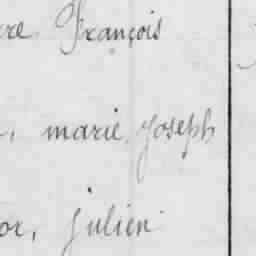 re François
, marie Joseph
or, julien